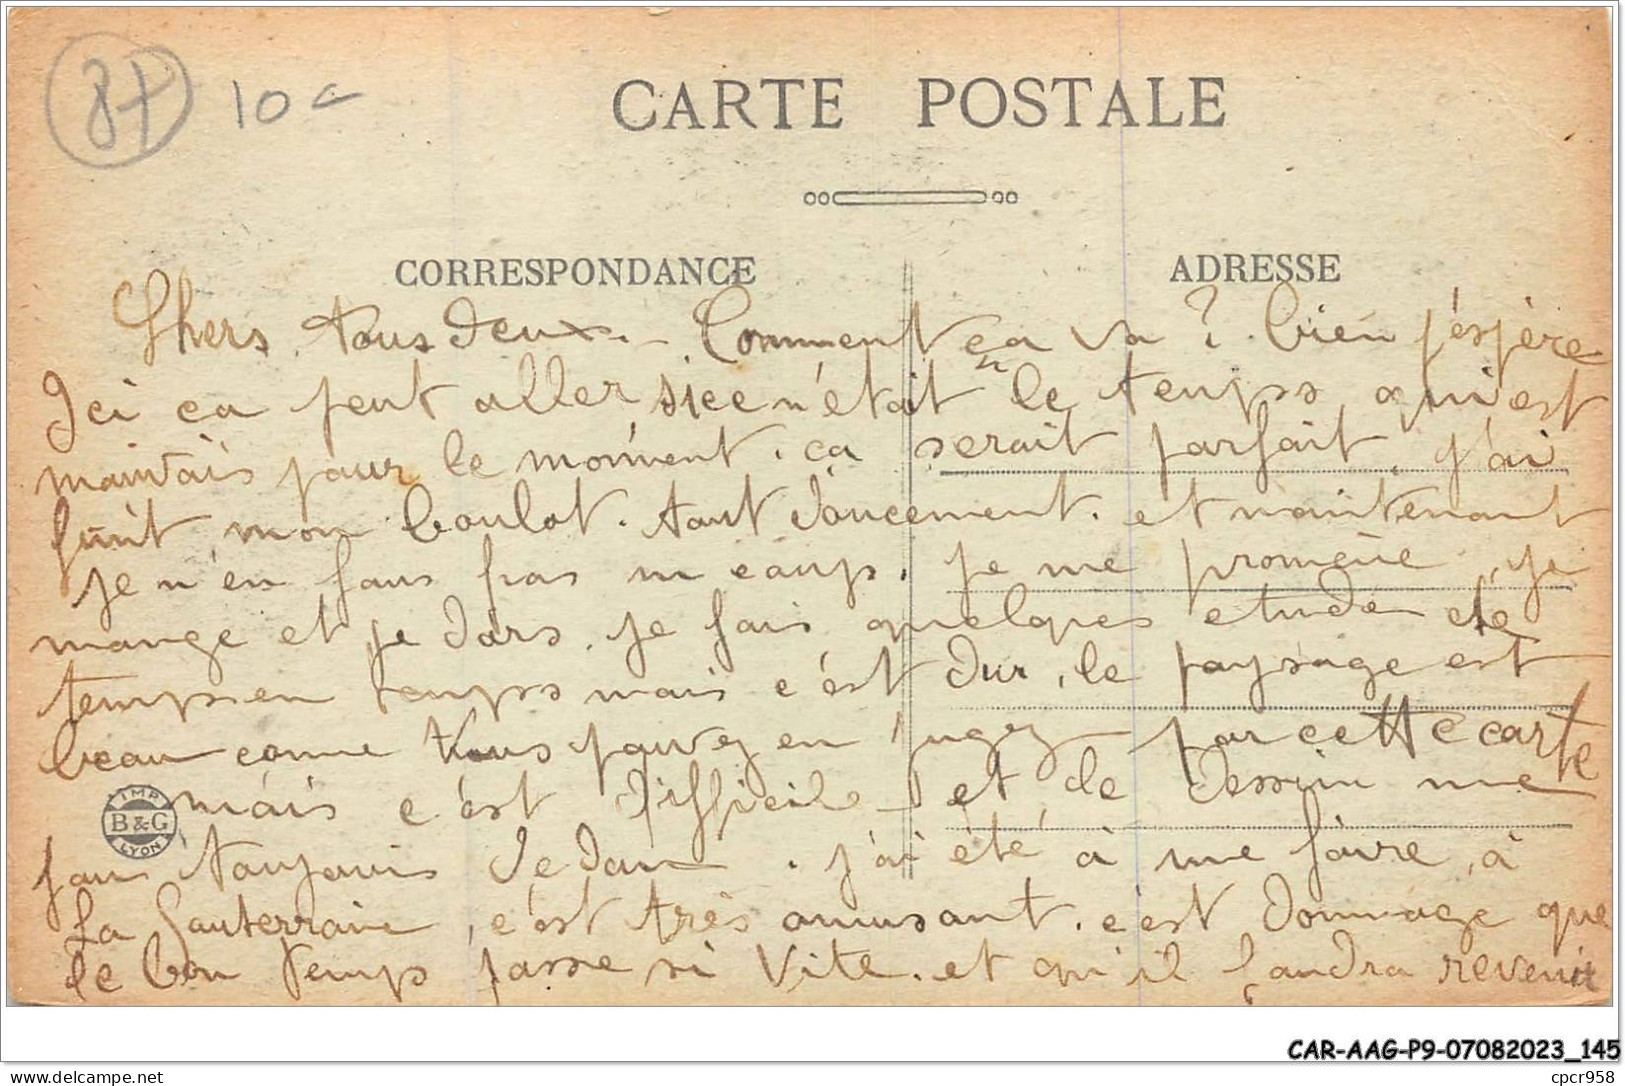 87 10
CARTE POSTALE
CORRESPONDANCE ADRESSE
Chers tous deux. – Comment ça va ? bien j'espère
Ici ca peut aller si ce n'était le temps qui est
mauvais pour le moment. ca serait parfait. j'ai
finit mon boulot. tout doucement. et maintenant
je n'en fous pas un coup. je me promène, je
mange et je dors. je fais quelques etude de
temps en temps mais c'est dur, le paysage est
beau comme vous pouvez en jugez par cette carte
mais c'est difficile et le dessin me
IMP B&G LYON
toujours dedans. j'ai été à me faire, à
La Souterraine, c'est très amusant. c'est dommage que
le bon temps passe si vite. et qu'il faudra revenir
CAR-AAG-P9-07082023_145
delcampe.net
cpcr958